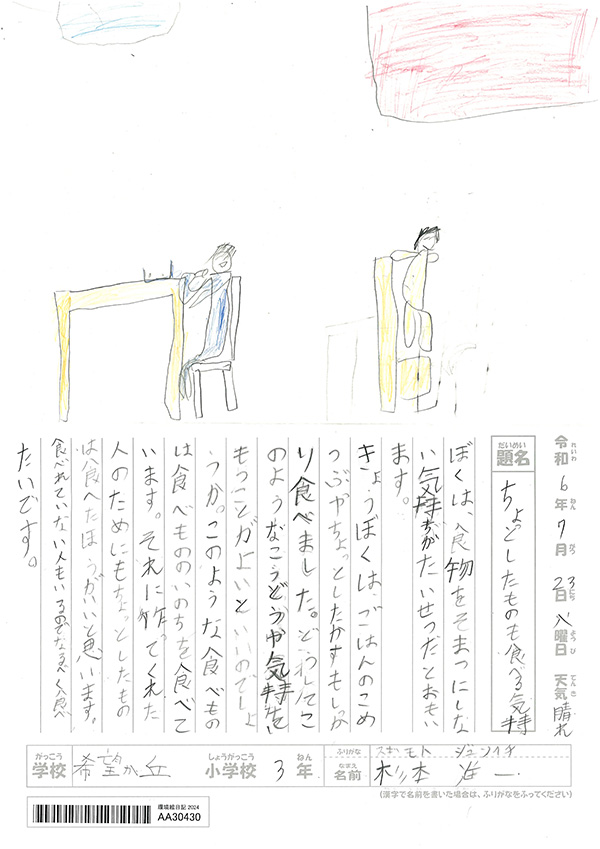 令和6年7月23日 火曜日 天気 晴れ
題名 ちょっとしたものも食べる気持
ぼくは、食物をそまつにしな
い気持ちがたいせつだとおもい
ます。
きょうぼくは、ごはんのこめ
つぶやちょっとしたかすもしっか
り食べました。どうしてこ
のようなこうどうや気持を
もつことがよいといいのでしょ
うか。このような食べもの
は食べもののいのちを食べて
います。それに作ってくれた
人のためにもちょっとしたもの
は食べたほうがいいと思います。
食べれていない人もいるのでなるべく食べ
たいです。
学校 希望が丘 小学校 3年 ふりがな スギモト ジュンイチ
名前 杉本 准一
(漢字で名前を書いた場合は、ふりがなをふってください)
環境絵日記 2024
AA30430